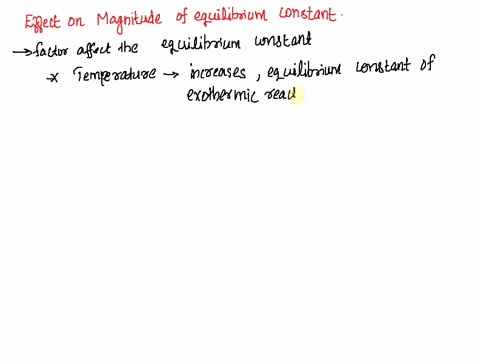 Effect on Magnitude of equilibrium constant.
→ factor affect the equilibrium constant
* Temperature → increases, equilibrium constant of
exothermic reac